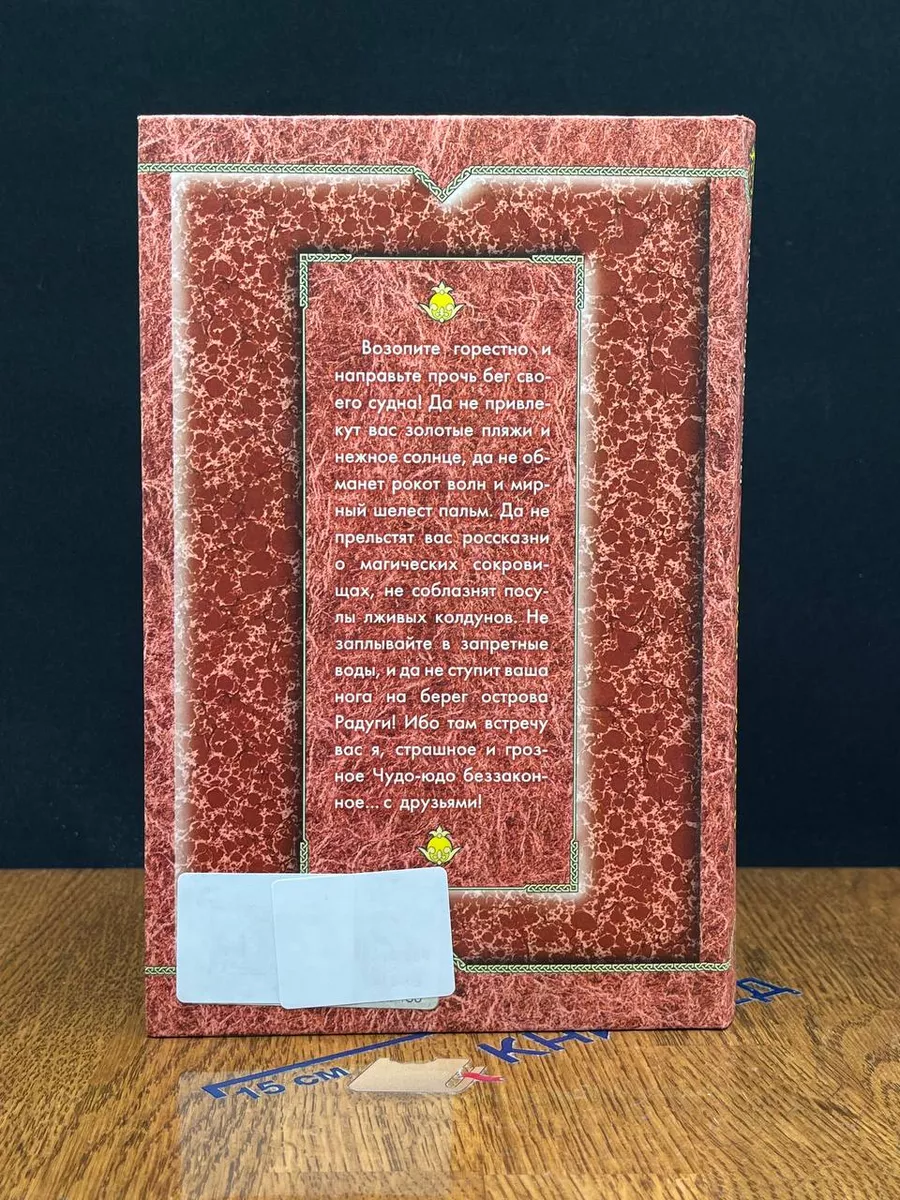 Возопите горестно и
направьте прочь бег сво-
его судна! Да не привле-
кут вас золотые пляжи и
нежное солнце, да не об-
манет рокот волн и мир-
ный шелест пальм. Да не
прельстят вас россказни
о магических сокрови-
щах, не соблазнят посу-
лы лживых колдунов. Не
заплывайте в запретные
воды, и да не ступит ваша
нога на берег острова
Радуги! Ибо там встречу
вас я, страшное и гроз-
ное Чудо-юдо беззакон-
ное... с друзьями!
15 см